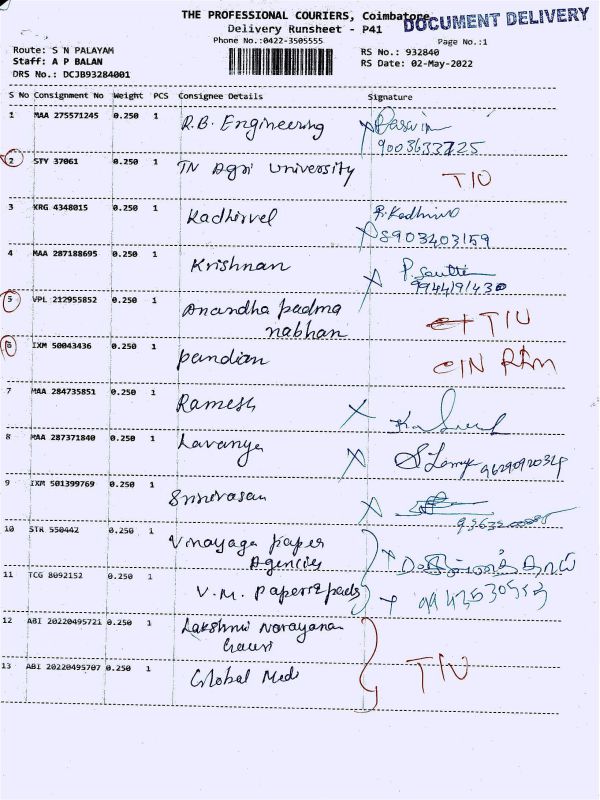 THE PROFESSIONAL COURIERS, Coimbatore
DOCUMENT DELIVERY
Delivery Runsheet - P41
Phone No.:0422-3505555
Page No.:1
Route: S N PALAYAM
RS No.: 932840
Staff: A P BALAN
RS Date: 02-May-2022
DRS No.: DCJB93284001
S No Consignment No Weight PCS Consignee Details Signature
1 MAA 275571245 0.250 1 R.B. Engineering
9003633725
2 STY 37061 0.250 1 TN Agri University TIU
3 KRG 4348015 0.250 1 Kadhirvel
8903403159
4 MAA 287188695 0.250 1 Krishnan
9944191430
5 VPL 212955852 0.250 1 Anandha padma
nabhan TIU
6 IXM 50043436 0.250 1 pandian
7 MAA 284735851 0.250 1 Ramesh
8 MAA 287371840 0.250 1 Lavanya
9 IXM 501399769 0.250 1 Srinivasan
10 STR 550442 0.250 1 Vinayaga paper
Agencies
11 TCG 8092152 0.250 1 V.M. Paper
12 ABI 20220495721 0.250 1 Lakshmi Narayana
Gauri
13 ABI 20220495707 0.250 1 Global Medi TIU